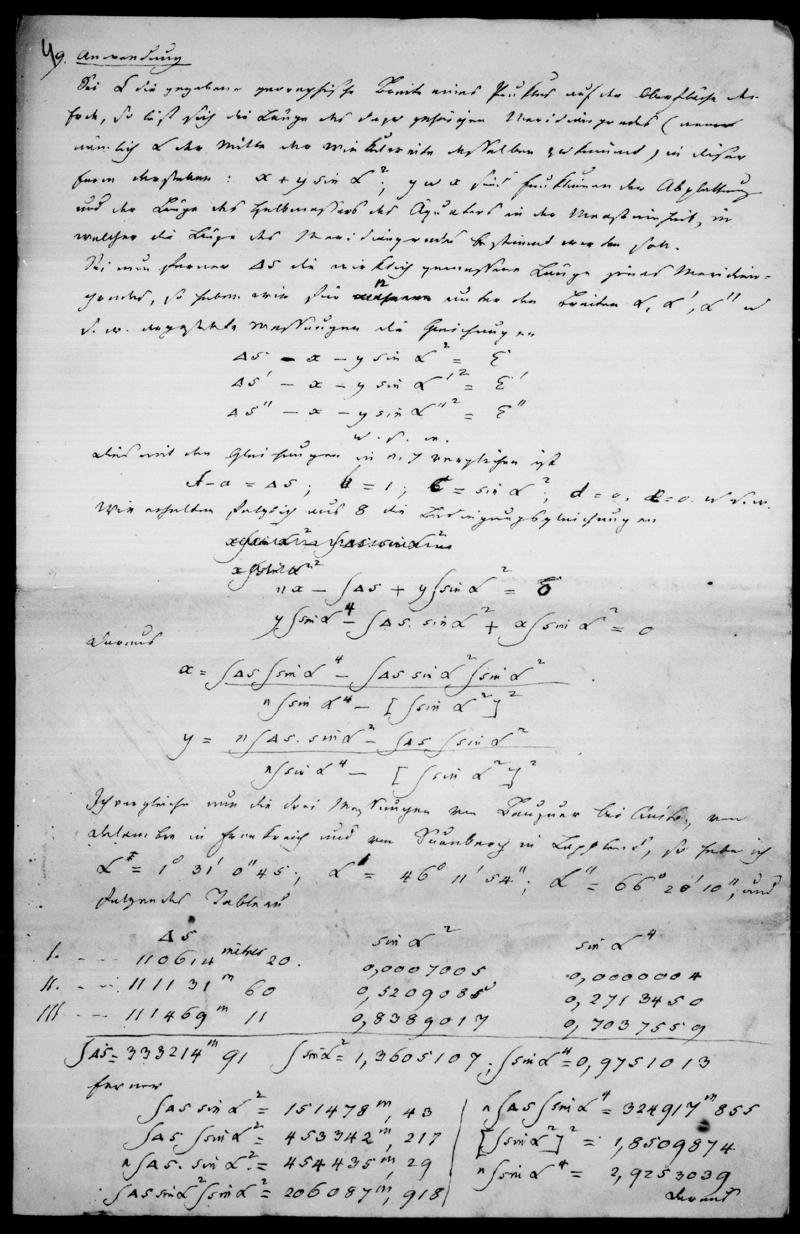 9. Anwendung
Sei L die gegebene geographische Breite eines Punktes auf der Oberfläche der
Erde, so läßt sich die Länge des dazu gehörigen Meridiangrades (wenn
nämlich L der Mitte der desselben zukommt) in dieser
Form darstellen: x + y sin L²; y u x sind Funktionen der Abplattung
und der Länge des Halbmessers des Äquators in der Maaßeinheit, in
welcher die Länge des Meridiangrades bestimmt werden soll.
Sei nun ferner Δs die wirklich gemessene Länge eines Meridian-
grades, so haben wir für n unter den Breiten L, L', L'' u
s. w. angestellte Messungen die Gleichungen
Δs - x - y sin L² = ε
Δs' - x - y sin L'² = ε'
Δs'' - x - y sin L''² = ε''
u. s. w.
Dies mit den Gleichungen in n. 7 verglichen ist
A-a = Δs; b = 1; c = sin L²; d = 0, e = 0. u s. w.
Wir erhalten folglich aus 8 die Bedingungsgleichungen
nx - ∫Δs + y∫sin L² = 0
y∫sin L⁴ - ∫Δs. sin L² + x∫sin L² = 0
daraus
x = ∫Δs∫sin L⁴ - ∫Δs sin L²∫sin L²
n∫sin L⁴ - [∫sin L²]²
y = n∫Δs. sin L² - ∫Δs∫sin L²
n∫sin L⁴ - [∫sin L²]²
Ich vergleiche nun die drei Messungen von Bouguer bei Quito, von
Delambre in Frankreich und von Svanberg in Lappland, so habe ich
L = 1° 31' 0'' 45; L' = 46° 11' 54''; L'' = 66° 20' 10'', und
folgendes Tableau
Δs sin L² sin L⁴
I. -- 110614 mètres 20. 0,0007005 0,0000004
II. -- 111131 m 60 0,5209085 0,2713450
III -- 111469 m 11 0,8389017 0,7037559
∫Δs = 333214 m 91 ∫sin L² = 1,3605107; ∫sin L⁴ = 0,9751013
ferner
∫Δs sin L² = 151478 m, 43 n∫Δs∫sin L⁴ = 324917 m 855
∫Δs. ∫sin L² = 453342 m, 217 [∫sin L²]² = 1,8509874
n∫Δs. sin L² = 454435 m, 29 n∫sin L⁴ = 2,9253039
∫Δs sin L²∫sin L² = 206087 m, 918 daraus